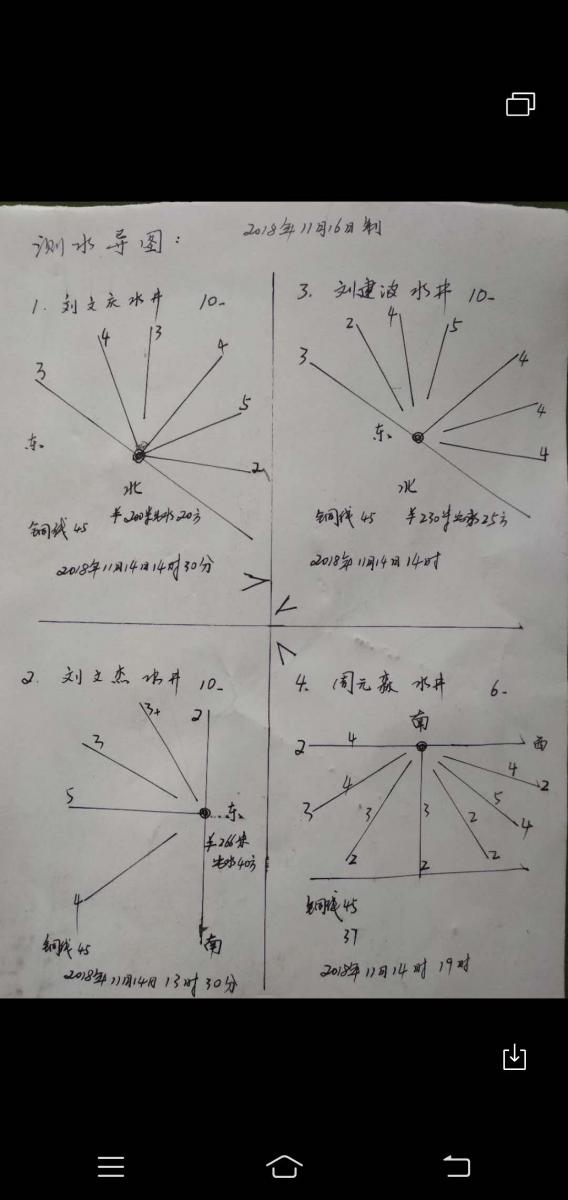 测水导图：
2018年11月16日制
1. 刘文庆水井 10-
3
4
3
4
5
2
东
北
井200米出水20方
铜线45
2018年11月14日14时30分
3. 刘建波水井 10-
3
2
4
5
4
4
4
东
北
铜线45 井230米出水25方
2018年11月14日14时
2. 刘文杰水井 10-
3+
2
3
5
东
井266米
出水40方
4
铜线45
南
2018年11月14日13时30分
4. 周元森水井 6-
南
2
4
西
4
3
4
2
3
3
2
5
4
2
2
2
铜线45
37
2018年11月14时19时